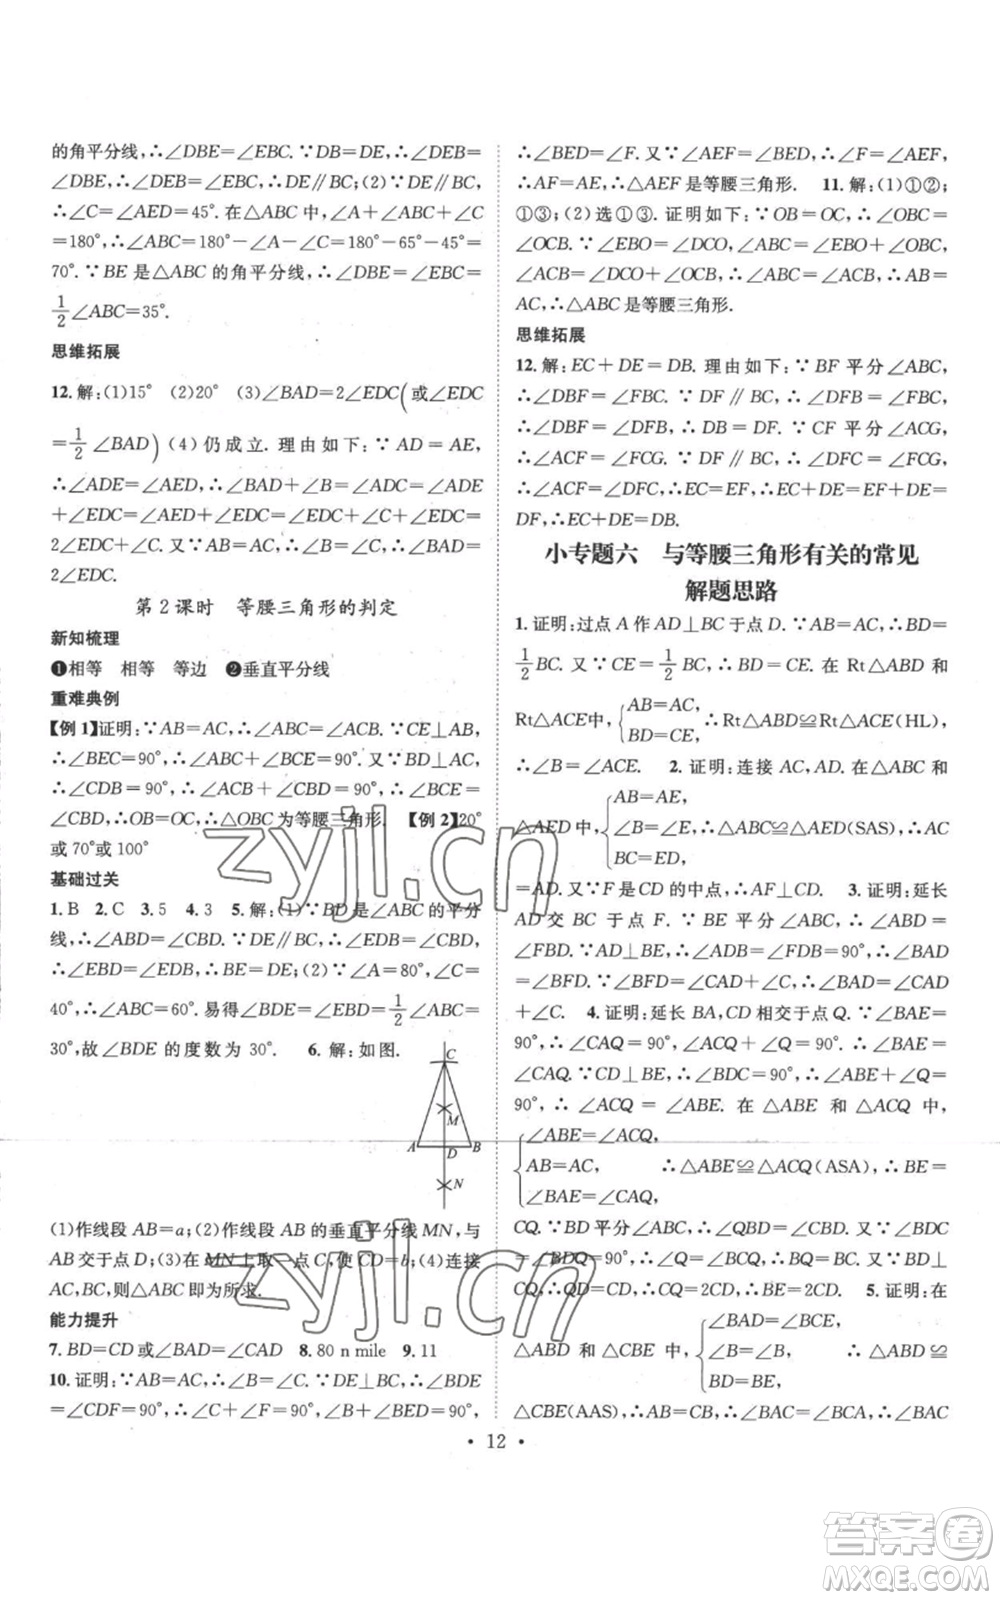 的角平分线,∴∠DBE=∠EBC.∵DB=DE,∴∠DEB=
∠DBE,∴∠DEB=∠EBC,∴DE∥BC;(2)∵DE∥BC,
∴∠C=∠AED=45°.在△ABC中,∠A+∠ABC+∠C
=180°,∴∠ABC=180°-∠A-∠C=180°-65°-45°=
70°.∵BE是△ABC的角平分线,∴∠DBE=∠EBC=
1/2∠ABC=35°.
思维拓展
12.解:(1)15° (2)20° (3)∠BAD=2∠EDC(或∠EDC
=1/2∠BAD) (4)仍成立.理由如下:∵AD=AE,
∴∠ADE=∠AED,∴∠BAD+∠B=∠ADC=∠ADE
+∠EDC=∠AED+∠EDC=∠EDC+∠C+∠EDC=
2∠EDC+∠C.又∵AB=AC,∴∠B=∠C,∴∠BAD=
2∠EDC.
第2课时 等腰三角形的判定
新知梳理
❶相等 相等 等边 ❷垂直平分线
重难典例
【例1】证明:∵AB=AC,∴∠ABC=∠ACB.∵CE⊥AB,
∴∠BEC=90°,∴∠ABC+∠BCE=90°.又∵BD⊥AC,
∴∠CDB=90°,∴∠ACB+∠CBD=90°,∴∠BCE=
∠CBD,∴OB=OC,∴△OBC为等腰三角形. 【例2】20°
或70°或100°
基础过关
1.B 2.C 3.5 4.3 5.解:(1)∵BD是∠ABC的平分
线,∴∠ABD=∠CBD.∵DE∥BC,∴∠EDB=∠CBD,
∴∠EBD=∠EDB,∴BE=DE;(2)∵∠A=80°,∠C=
40°,∴∠ABC=60°.易得∠BDE=∠EBD=1/2∠ABC=
30°,故∠BDE的度数为30°. 6.解:如图.
C
M
A D B
N
(1)作线段AB=a;(2)作线段AB的垂直平分线MN,与
AB交于点D;(3)在MN上取一点C,使CD=b;(4)连接
AC,BC,则△ABC即为所求.
能力提升
7.BD=CD或∠BAD=∠CAD 8.80 n mile 9.11
10.证明:∵AB=AC,∴∠B=∠C.∵DE⊥BC,∴∠BDE
=∠CDF=90°,∴∠C+∠F=90°,∠B+∠BED=90°,
∴∠BED=∠F.又∵∠AEF=∠BED,∴∠F=∠AEF,
∴AF=AE,∴△AEF是等腰三角形. 11.解:(1)①②;
①③;(2)选①③.证明如下:∵OB=OC,∴∠OBC=
∠OCB.∵∠EBO=∠DCO,∴∠ABC=∠EBO+∠OBC,
∠ACB=∠DCO+∠OCB,∴∠ABC=∠ACB,∴AB=
AC,∴△ABC是等腰三角形.
思维拓展
12.解:EC+DE=DB.理由如下:∵BF平分∠ABC,
∴∠DBF=∠FBC.∵DF∥BC,∴∠DFB=∠FBC,
∴∠DBF=∠DFB,∴DB=DF.∵CF平分∠ACG,
∴∠ACF=∠FCG.∵DF∥BC,∴∠DFC=∠FCG,
∴∠ACF=∠DFC,∴EC=EF,∴EC+DE=EF+DE=
DF,∴EC+DE=DB.
小专题六 与等腰三角形有关的常见
解题思路
1.证明:过点A作AD⊥BC于点D.∵AB=AC,∴BD=
1/2BC.又∵CE=1/2BC,∴BD=CE.在Rt△ABD和
Rt△ACE中,{AB=AC, BD=CE, ∴Rt△ABD≌Rt△ACE(HL),
∴∠B=∠ACE. 2.证明:连接AC,AD.在△ABC和
△AED中,{AB=AE, ∠B=∠E, BC=ED, ∴△ABC≌△AED(SAS),∴AC
=AD.又∵F是CD的中点,∴AF⊥CD. 3.证明:延长
AD交BC于点F.∵BE平分∠ABC,∴∠ABD=
∠FBD.∵AD⊥BE,∴∠ADB=∠FDB=90°,∴∠BAD
=∠BFD.∵∠BFD=∠C+∠CAD,∴∠BAD=∠CAD
+∠C. 4.证明:延长BA,CD交于点Q.∵∠BAC=
90°,∴∠CAQ=90°=∠BAC,∴∠BAE=
∠CAQ.∵CD⊥BE,∴∠BDC=90°,∴∠ABE+∠Q=
90°,∴∠ACQ=∠ABE.在△ABE和△ACQ中,
{∠ABE=∠ACQ, AB=AC, ∠BAE=∠CAQ, ∴△ABE≌△ACQ(ASA),∴BE=
CQ.∵BD平分∠ABC,∴∠QBD=∠CBD.又∵∠BDC
=∠BDQ=90°,∴∠Q=∠BCD,∴BQ=BC.又∵BD⊥
CQ,∴QD=CD,∴CQ=2CD,∴BE=2CD. 5.证明:在
△ABD和△CBE中,{∠BAD=∠BCE, ∠B=∠B, BD=BE, ∴△ABD≌
△CBE(AAS),∴AB=CB,∴∠BAC=∠BCA,∴∠FAC
• 12 •
zyjl.cn
zyjl.cn
答案卷
MXQE.COM